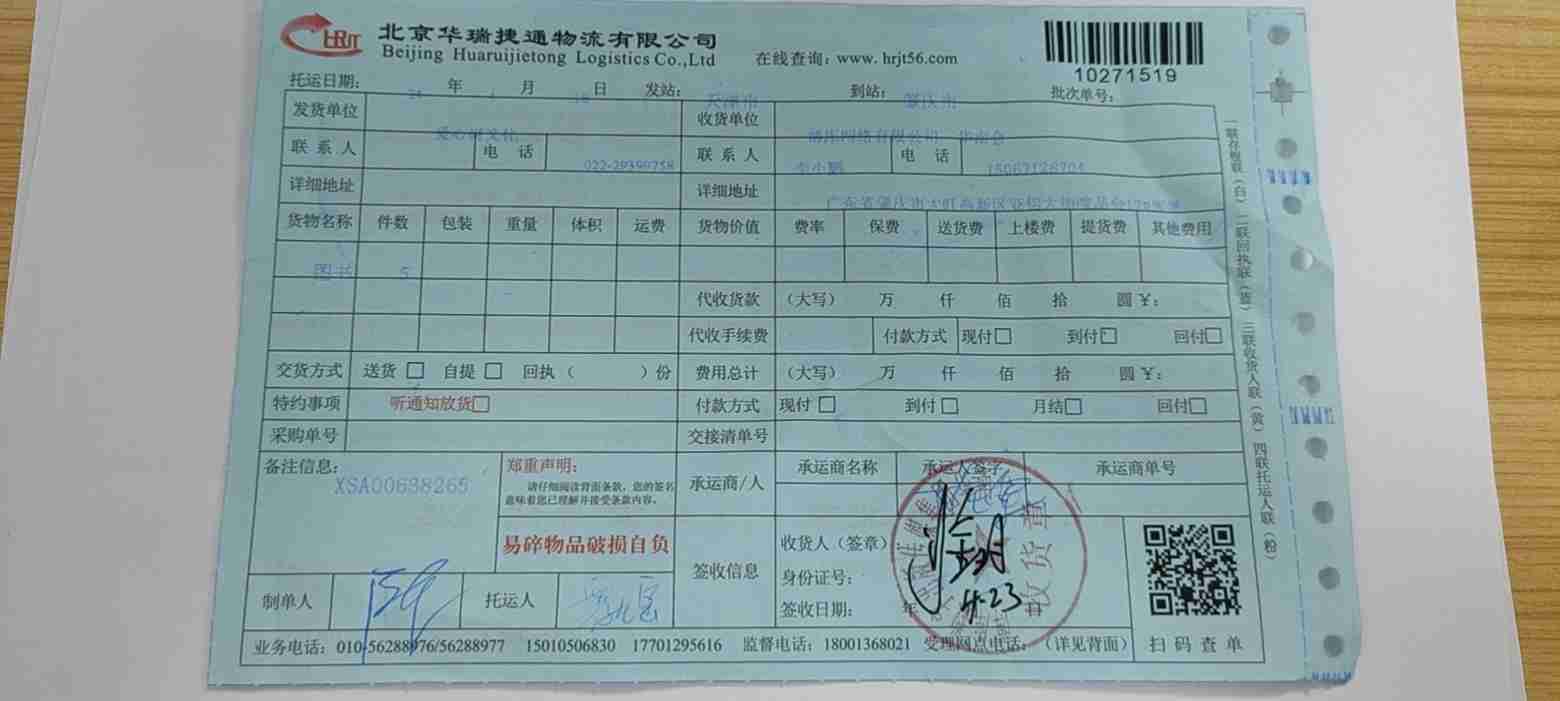 HRJT 北京华瑞捷通物流有限公司
Beijing Huaruijietong Logistics Co.,Ltd 在线查询：www.hrjt56.com
10271519
托运日期： 年 月 日 发站：天津市 到站：肇庆市 批次单号：
发货单位 收货单位
联系人 电话 022-29399758 联系人 电话
详细地址 详细地址
货物名称 件数 包装 重量 体积 运费 货物价值 费率 保费 送货费 上楼费 提货费 其他费用
图书 5
代收货款 （大写） 万 仟 佰 拾 圆 ¥：
代收手续费 付款方式 现付□ 到付□ 回付□
交货方式 送货 □ 自提 □ 回执（ ）份 费用总计 （大写） 万 仟 佰 拾 圆 ¥：
特约事项 听通知放货□ 付款方式 现付 □ 到付□ 月结□ 回付□
采购单号 交接清单号
备注信息： XSA00638265
郑重声明：
请仔细阅读背面条款，您的签名
意味着您已理解并接受条款内容。
易碎物品破损自负
承运商/人 承运商名称 承运人签字 承运商单号
签收信息 收货人（签章）
身份证号：
签收日期： 年 4.23 日
收货章
制单人 托运人
业务电话：010-56288976/56288977 15010506830 17701295616 监督电话：18001368021 受理网点电话：（详见背面）
扫码查单
一联存根联（白）二联回执联（蓝）三联收货人联（黄）四联托运人联（粉）